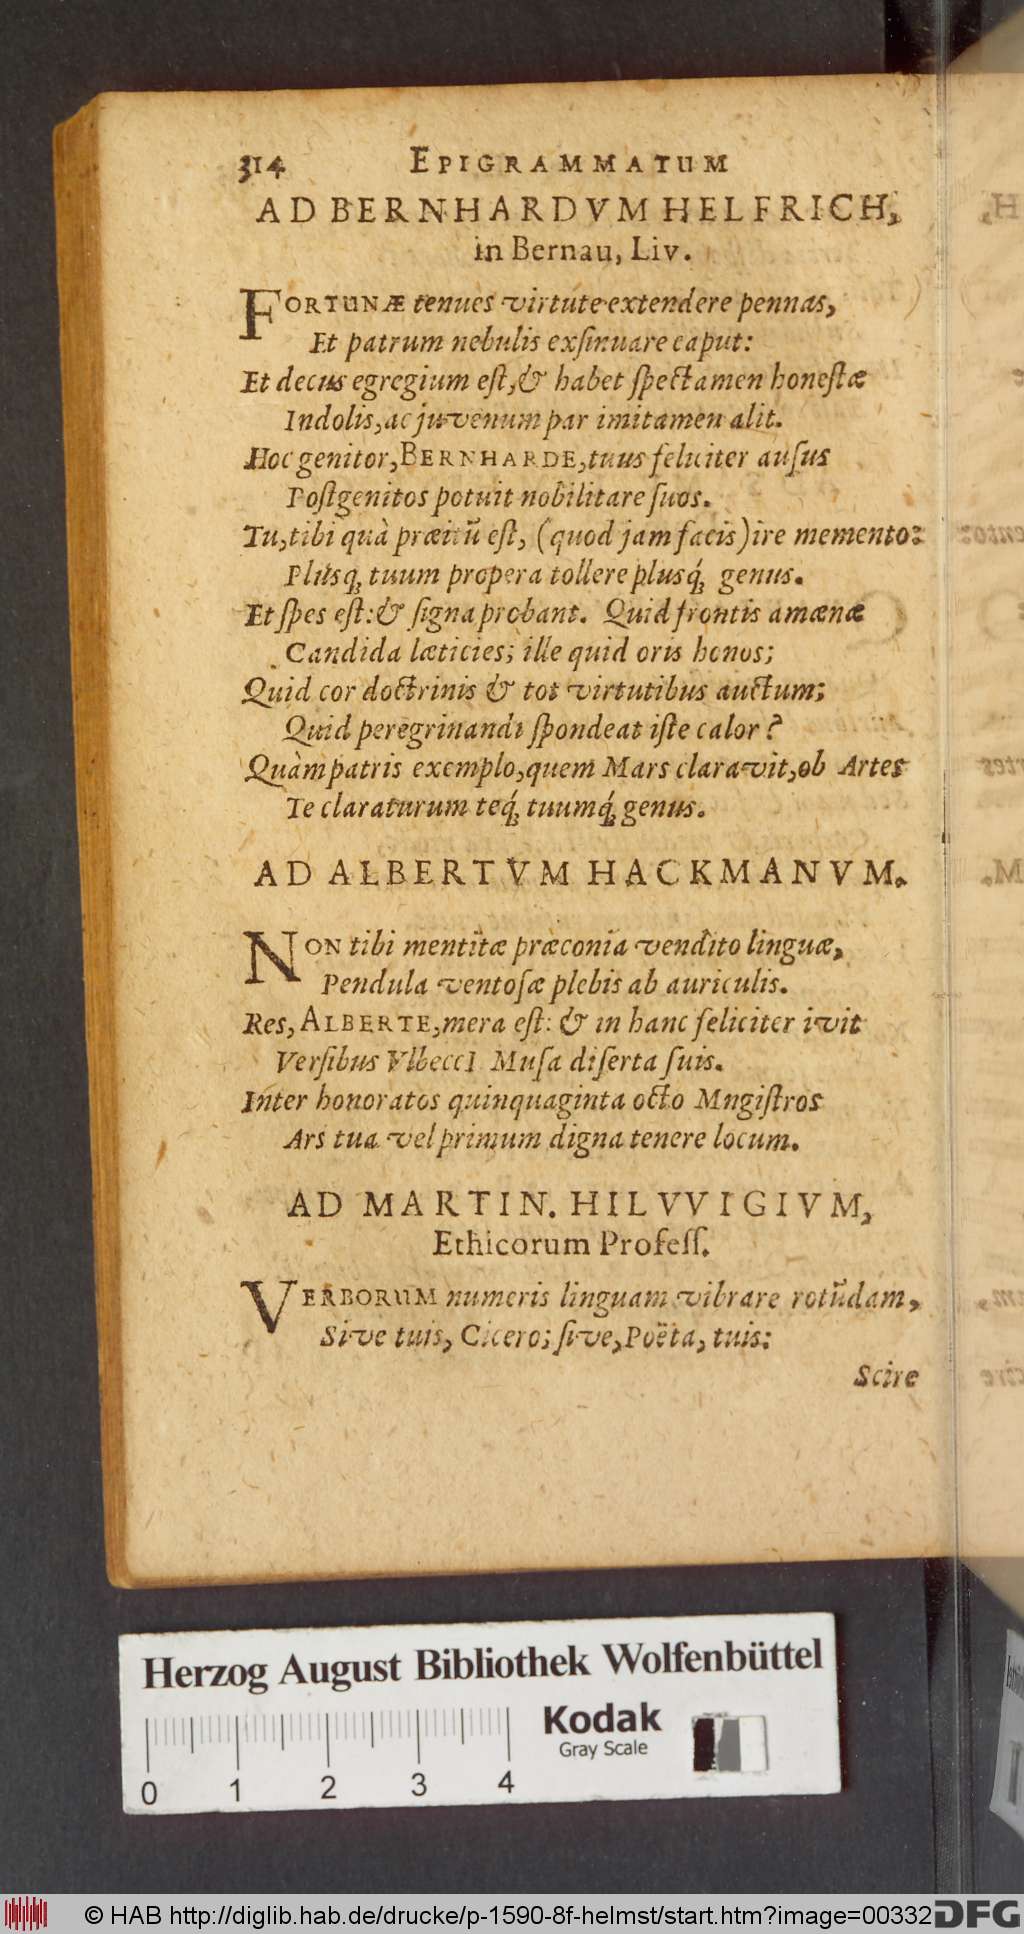 314 EPIGRAMMATUM
AD BERNHARDVM HELFRICH,
in Bernau, Liv.
FORTUNÆ tenues virtute extendere pennas,
Et patrum nebulis exſinuare caput:
Et decus egregium eſt, & habet ſpectamen honeſtæ
Indolis, ac juvenum par imitamen alit.
Hoc genitor, BERNHARDE, tuus feliciter auſus
Poſtgenitos potuit nobilitare ſuos.
Tu, tibi quà præitũ eſt, (quod jam facis) ire memento:
Plusq́; tuum propera tollere plusq́; genus.
Et ſpes eſt: & ſigna probant. Quid frontis amænæ
Candida læticies; ille quid oris honos;
Quid cor doctrinis & tot virtutibus auctum;
Quid peregrinandi ſpondeat iſte calor?
Quàm patris exemplo, quem Mars claravit, ob Artes
Te claraturum teq́; tuumq́; genus.
AD ALBERTVM HACKMANVM.
NON tibi mentitæ præconia vendito linguæ,
Pendula ventoſæ plebis ab auriculis.
Res, ALBERTE, mera eſt: & in hanc feliciter ivit
Verſibus Vlbeccl Muſa diſerta ſuis.
Inter honoratos quinquaginta octo Mngiſtros
Ars tua vel primum digna tenere locum.
AD MARTIN. HILVVIGIVM,
Ethicorum Profeſſ.
VERBORUM numeris linguam vibrare rotũdam,
Sive tuis, Cicero; ſive, Poëta, tuis:
Scire
Herzog August Bibliothek Wolfenbüttel
Kodak
Gray Scale
0 1 2 3 4
© HAB http://diglib.hab.de/drucke/p-1590-8f-helmst/start.htm?image=00332
DFG